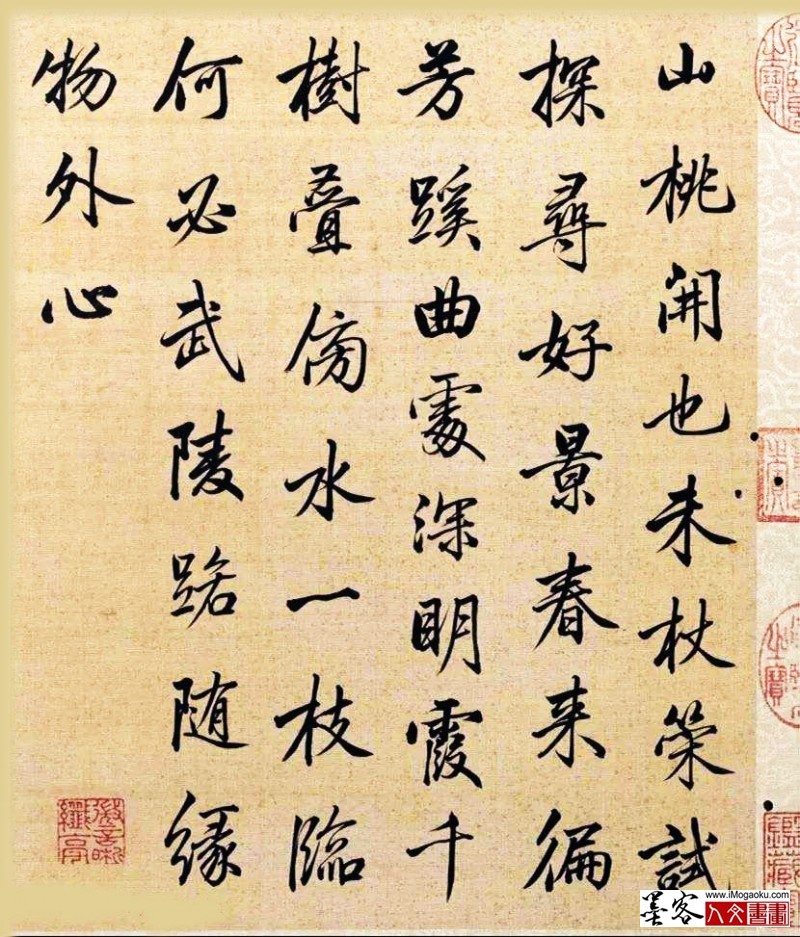 山桃開也未杖策試
探尋好景春来徧
芳蹊曲處深明霞千
樹疊傍水一枝臨
何必武陵路随緣
物外心
www.iMogaoku.com
墨客人文書畫